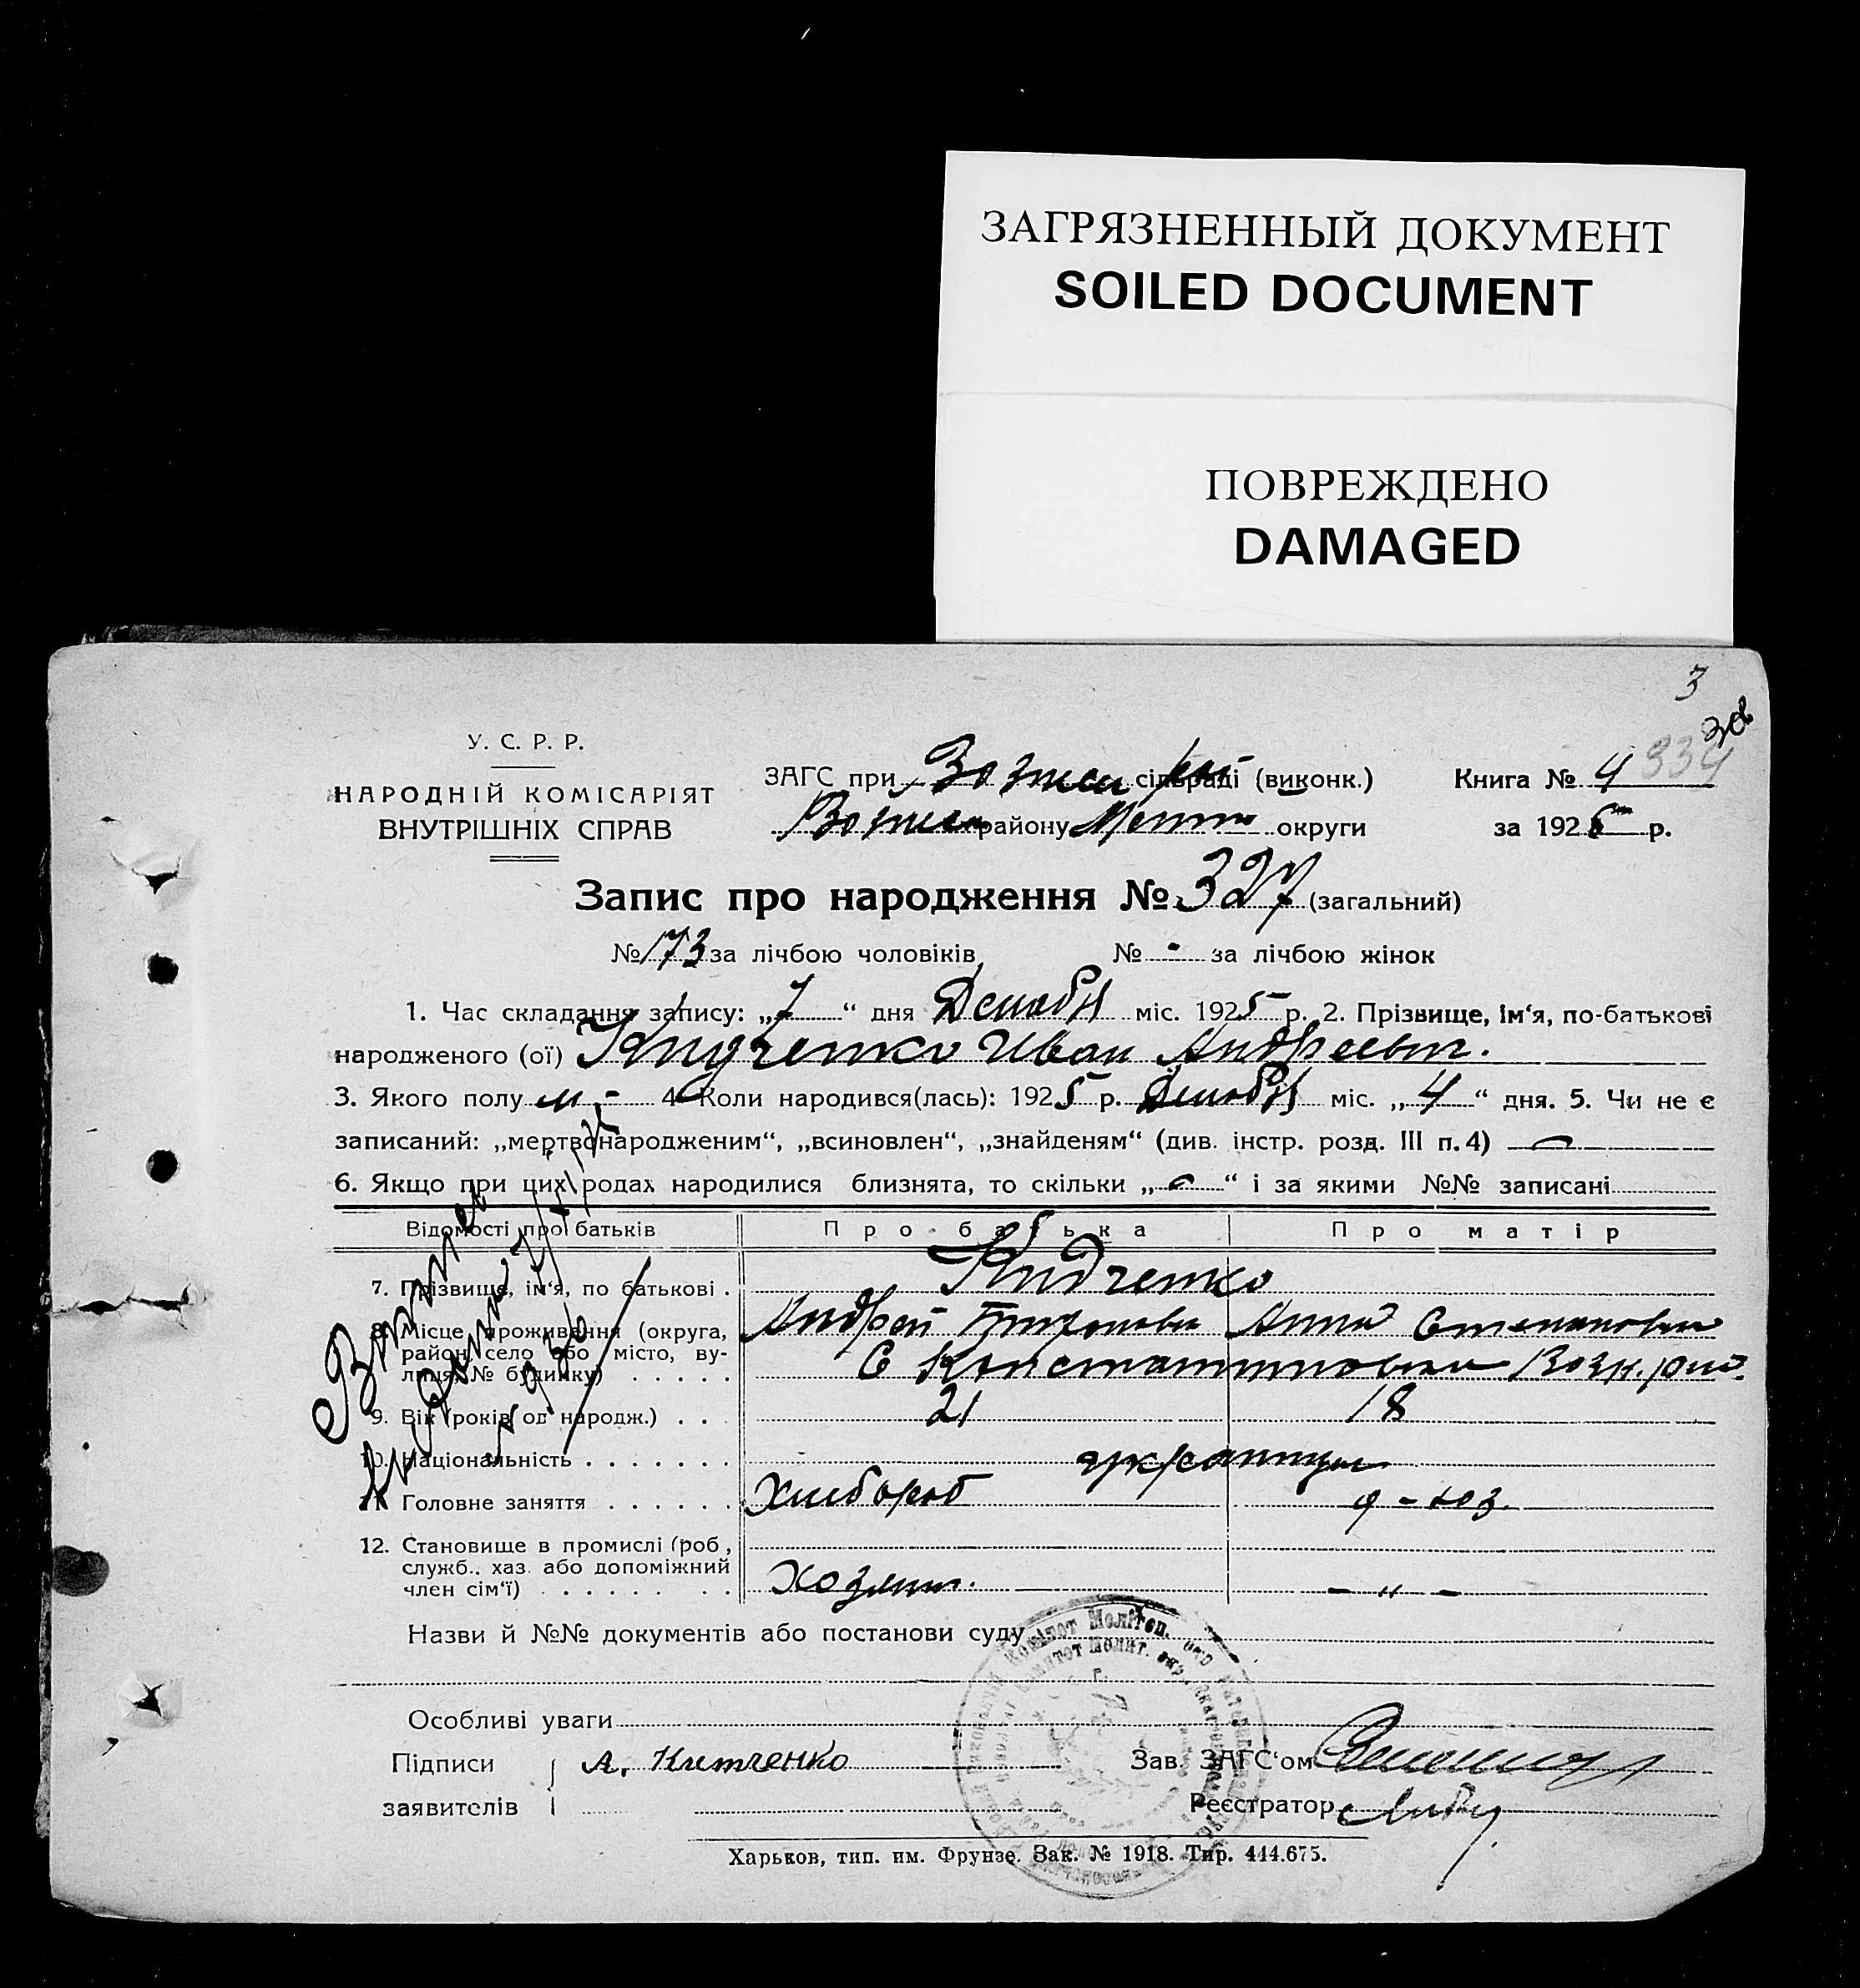 ЗАГРЯЗНЕННЫЙ ДОКУМЕНТ
SOILED DOCUMENT
ПОВРЕЖДЕНО
DAMAGED
3
334
У. С. Р. Р.
НАРОДНІЙ КОМІСАРІЯТ
ВНУТРІШНІХ СПРАВ
ЗАГС при сільраді (виконк.) Книга № 4
району округи за 1925 р.
Запис про народження № 327 (загальний)
№ 173 за лічбою чоловіків № - за лічбою жінок
1. Час складання запису: „7“ дня Декабря міс. 1925 р. 2. Прізвище, ім‘я, по-батькові
народженого (ої) Иван Андреевич.
3. Якого полу м - 4 Коли народився(лась): 1925 р. Декабря міс. „4“ дня. 5. Чи не є
записаний: „мертвонародженим“, „всиновлен“, „знайденям“ (див. інстр. розд. III п. 4) —
6. Якщо при цих родах народилися близнята, то скільки „-“ і за якими №№ записані
Відомості про батьків Про батька Про матір
7. Прізвище, ім‘я, по батькові .
8. Місце проживання (округа, Андрей Анна Степановна
район, село або місто, ву- С Константиновка
лиця, № будинку) . . . . .
9. Вік (років од народж.) . . 21 18
10. Національність . . . . . . . украинцы
11 Головне заняття . . . . . . Хлебороб
12. Становище в промислі (роб,
служб., хаз. або допоміжний
член сім‘ї) . . . . . . . . Хозяин. - „ -
Назви й №№ документів або постанови суду
Особливі уваги
Підписи А. Китченко Зав. ЗАГС‘ом
заявителів Реєстратор
Харьков, тип. им. Фрунзе. Зак. № 1918. Тир. 444.675.